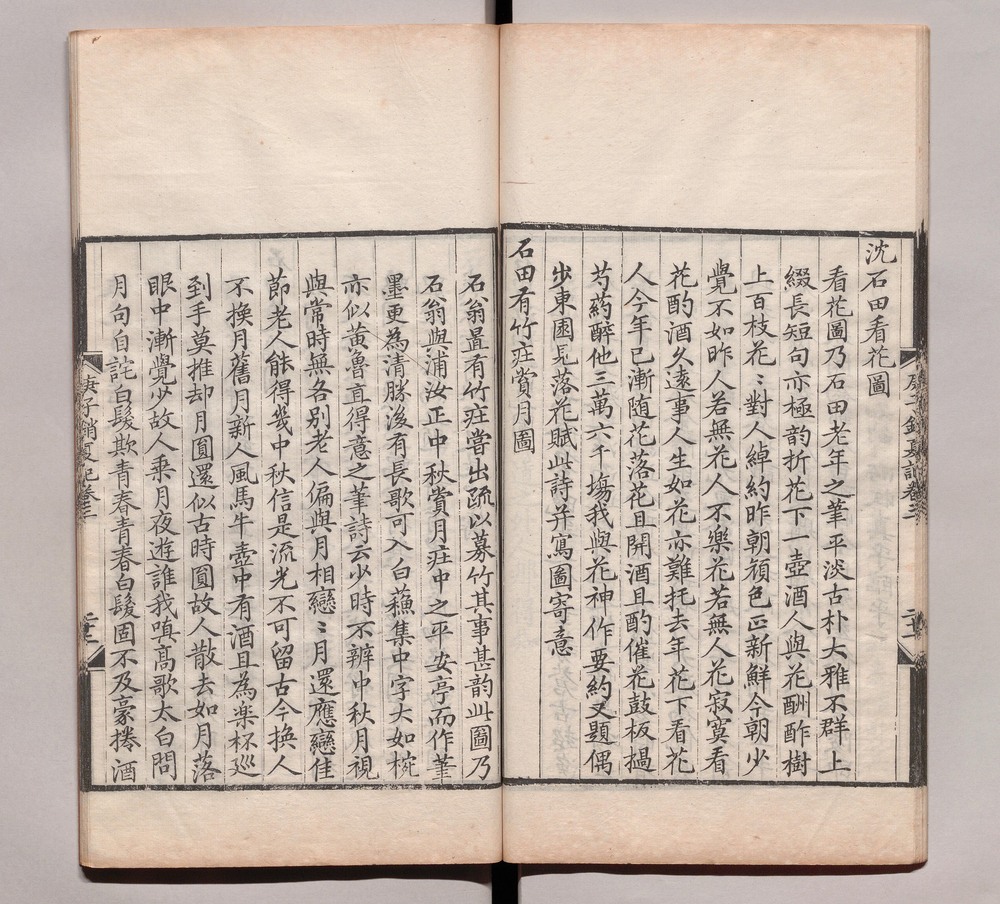 沈石田看花圖
看花圖乃石田老年之筆平淡古朴大雅不群上
綴長短句亦極韵折花下一壺酒人與花酬酢樹
上百枝花〻對人婥約昨朝顔色正新鮮今朝少
覺不如昨人若無花人不樂花若無人花寂寞看
花酌酒久遠事人生如花亦難托去年花下看花
人今年已漸随花落花且開酒且酌催花鼓板撾
芍藥醉他三萬六千塲我與花神作要約又題偶
步東園見落花賦此詩并寫圖寄意
石田有竹庄賞月圖
石翁置有竹庄嘗出疏以募竹其事甚韵此圖乃
石翁與浦汝正中秋賞月庄中之平安亭而作筆
墨更為清勝後有長歌可入白蘓集中字大如椀
亦似黄魯直得意之筆詩云少時不辨中秋月視
與常時無各别老人偏與月相戀〻月還應戀佳
節老人能得幾中秋信是流光不可留古今換人
不換月舊月新人風馬牛壺中有酒且為楽杯巡
到手莫推却月圓還似古時圓故人散去如月落
眼中漸覺少故人乘月夜遊誰我嗔髙歌太白問
月句自詫白髮欺青春青春白髮固不及豪捲酒
庚子銷夏記卷三